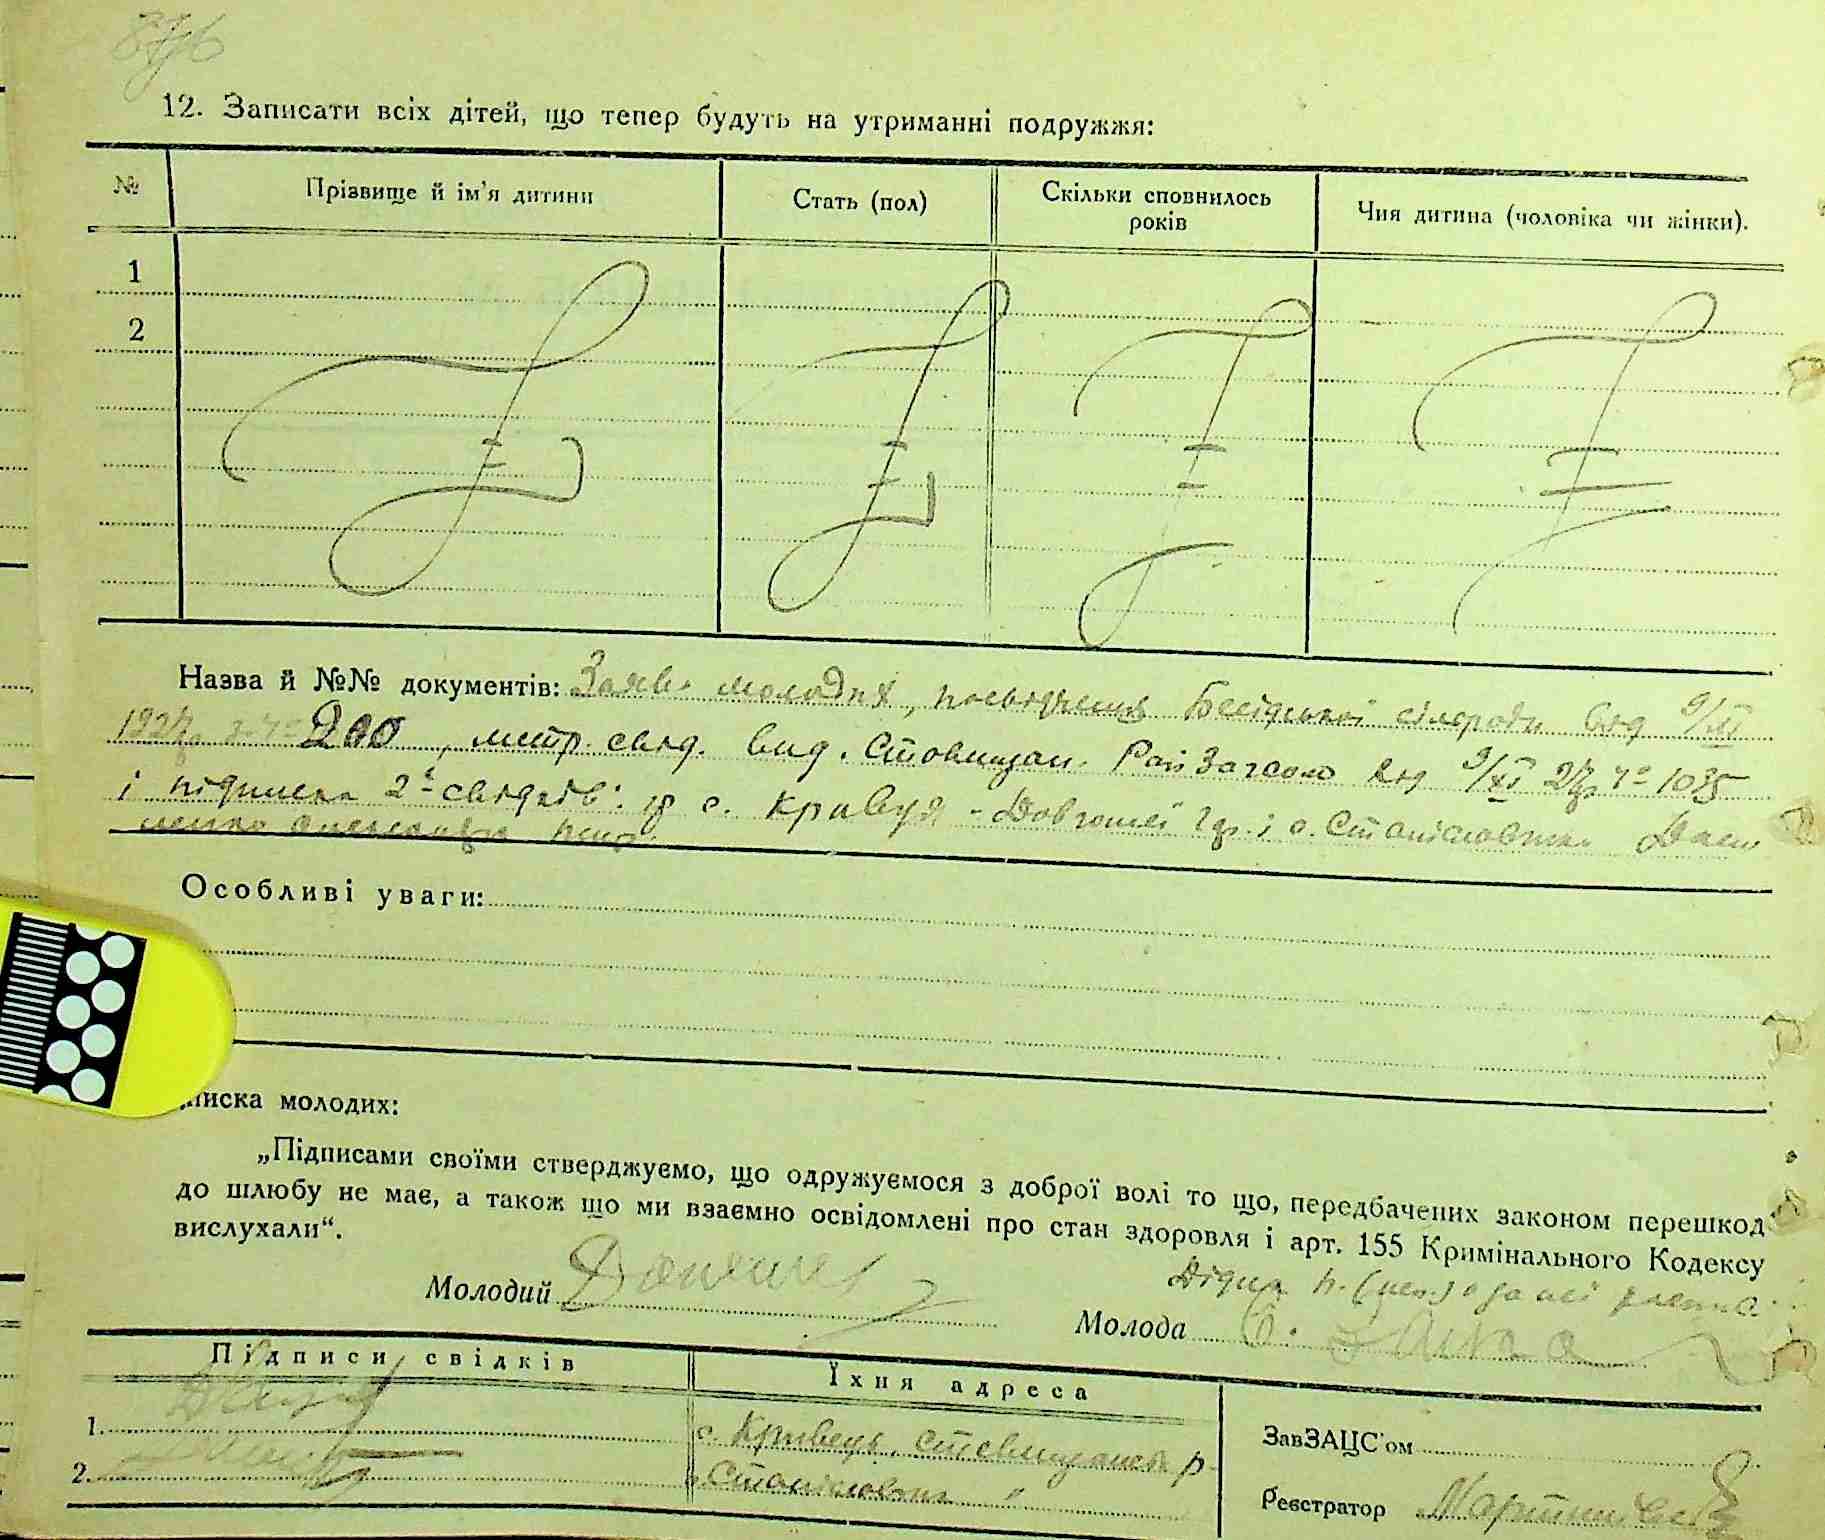 12. Записати всіх дітей, що тепер будуть на утриманні подружжя:
№ Прізвище й ім'я дитини Стать (пол) Скільки сповнилось років Чия дитина (чоловіка чи жінки).
1
2
Назва й №№ документів: Заяв. молодих, посвідчення Бесідської сільради від 9/XI
1927р. з № 200, метр. свід. вид. Ставищан. РайЗагсом від 9/XI 27р. № 1035
і підписка 2х свідків: гр с. Кривця - і с. Станіславчик
Особливі уваги:
писка молодих:
„Підписами своїми стверджуємо, що одружуємося з доброї волі то що, передбачених законом перешкод
до шлюбу не має, а також що ми взаємно освідомлені про стан здоровля і арт. 155 Кримінального Кодексу
вислухали“.
Молодий
Молода
Підписи свідків Їхня адреса
1. с. Кривець, Ставищанськ р.
2. Станіславчик "
ЗавЗАЦС'ом
Реєстратор